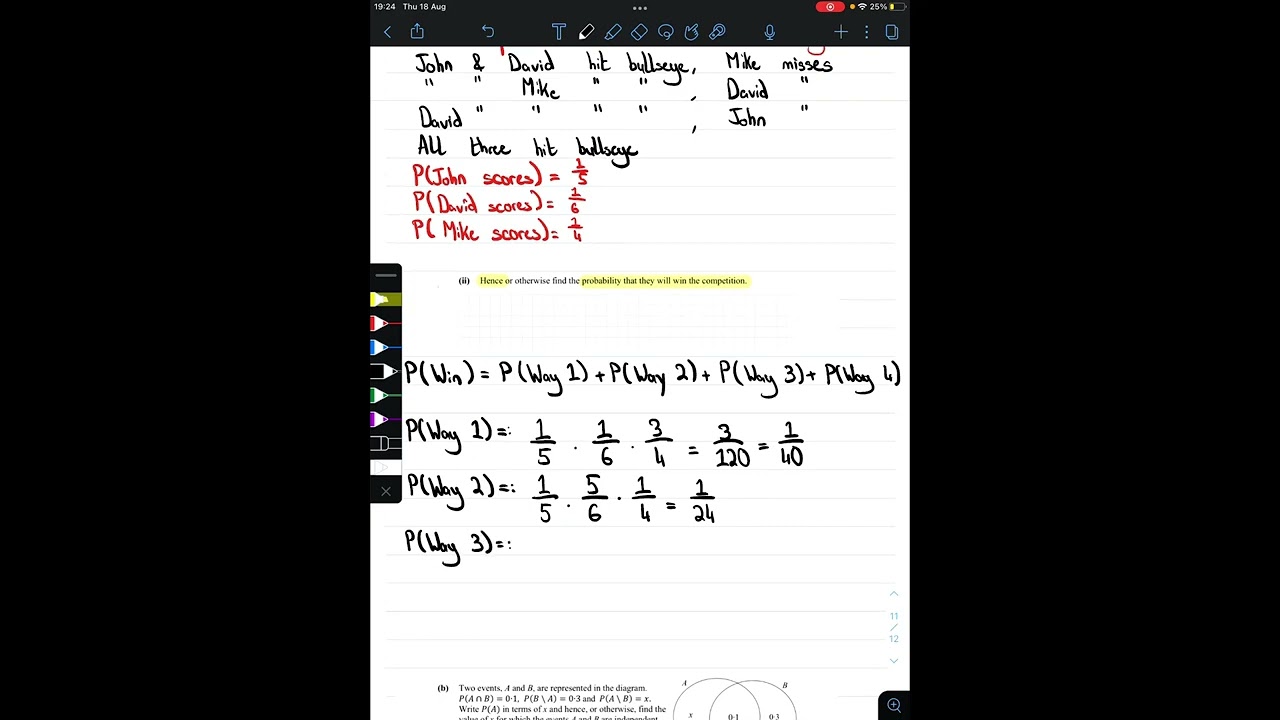 19:24 Thu 18 Aug
25%
John & David hit bullseye, Mike misses
" " Mike " " , David "
David " " " " , John "
All three hit bullseye
P(John scores) = 1/5
P(David scores) = 1/6
P(Mike scores) = 1/4
(ii) Hence or otherwise find the probability that they will win the competition.
P(Win) = P(Way 1) + P(Way 2) + P(Way 3) + P(Way 4)
P(Way 1) =: 1/5 · 1/6 · 3/4 = 3/120 = 1/40
P(Way 2) =: 1/5 · 5/6 · 1/4 = 1/24
P(Way 3) =:
11
/
12
(b) Two events, A and B, are represented in the diagram.
P(A ∩ B) = 0·1, P(B \ A) = 0·3 and P(A \ B) = x.
Write P(A) in terms of x and hence, or otherwise, find the
value of x for which the events A and B are independent
A B
x 0·1 0·3